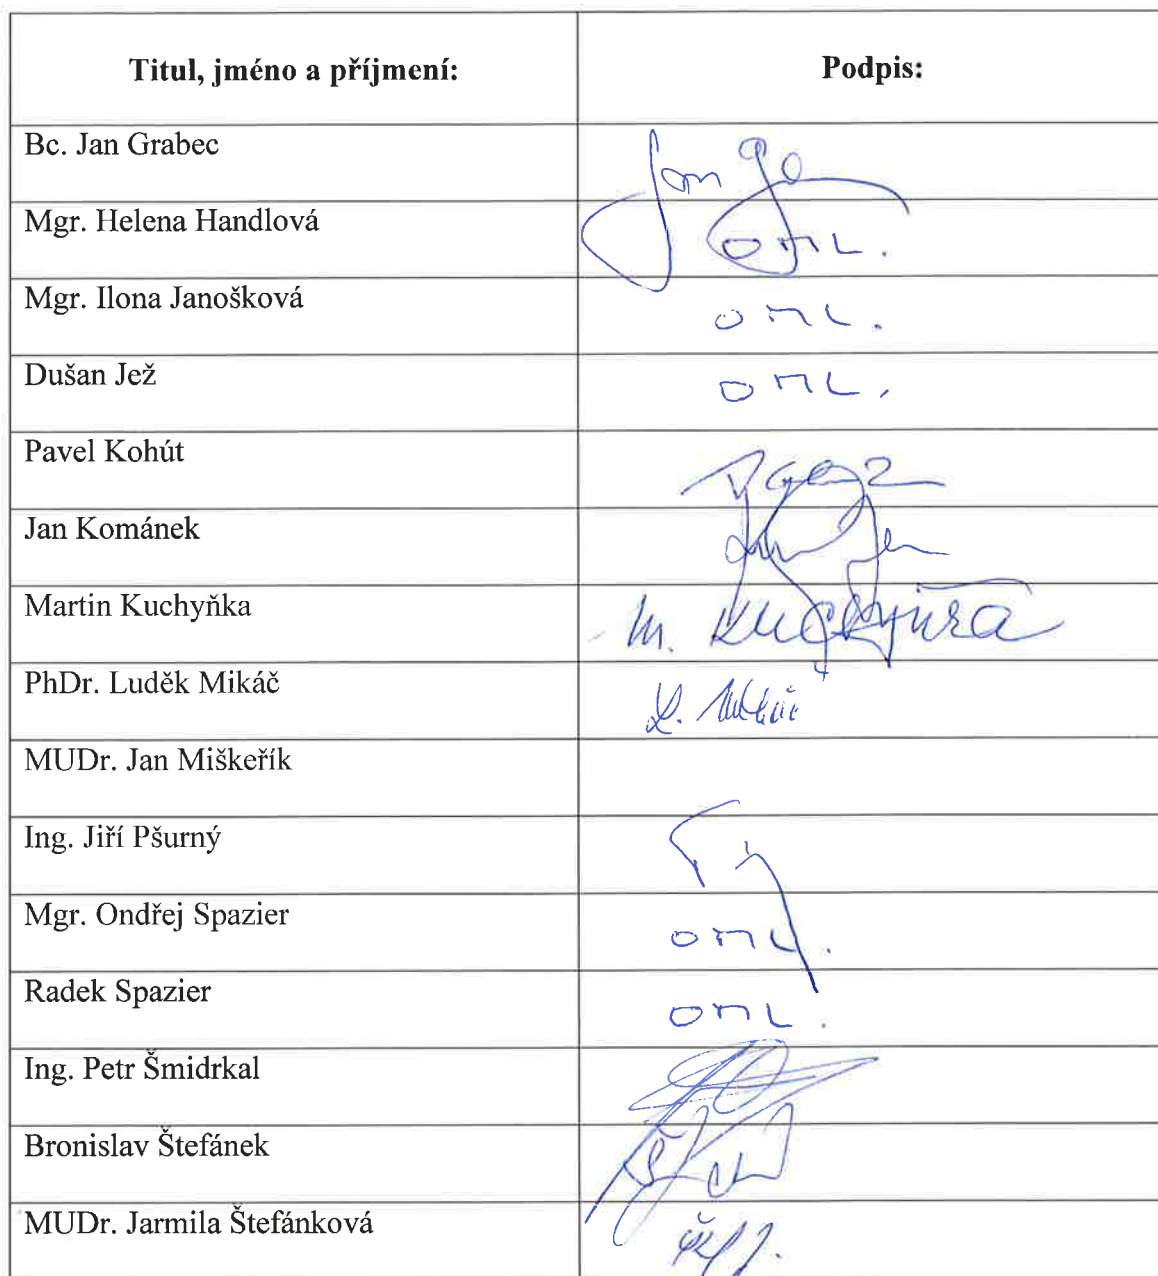 Titul, jméno a příjmení: Podpis:
Bc. Jan Grabec Jan
Mgr. Helena Handlová OML.
Mgr. Ilona Janošková OML.
Dušan Jež OML.
Pavel Kohút
Jan Kománek
Martin Kuchyňka M. Kuchyňka
PhDr. Luděk Mikáč L. Mikáč
MUDr. Jan Miškeřík
Ing. Jiří Pšurný
Mgr. Ondřej Spazier OML.
Radek Spazier OML.
Ing. Petr Šmidrkal
Bronislav Štefánek
MUDr. Jarmila Štefánková